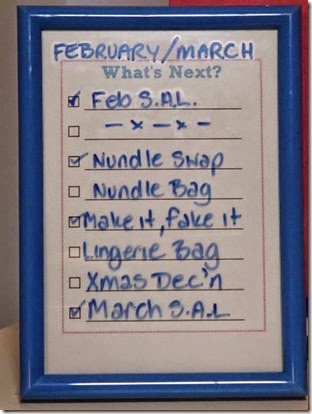 FEBRUARY/MARCH
What's Next?
Feb S.A.L.
- x - x -
Nundle Swap
Nundle Bag
Make it, fake it
Lingerie Bag
Xmas Dec'n
March S.A.L